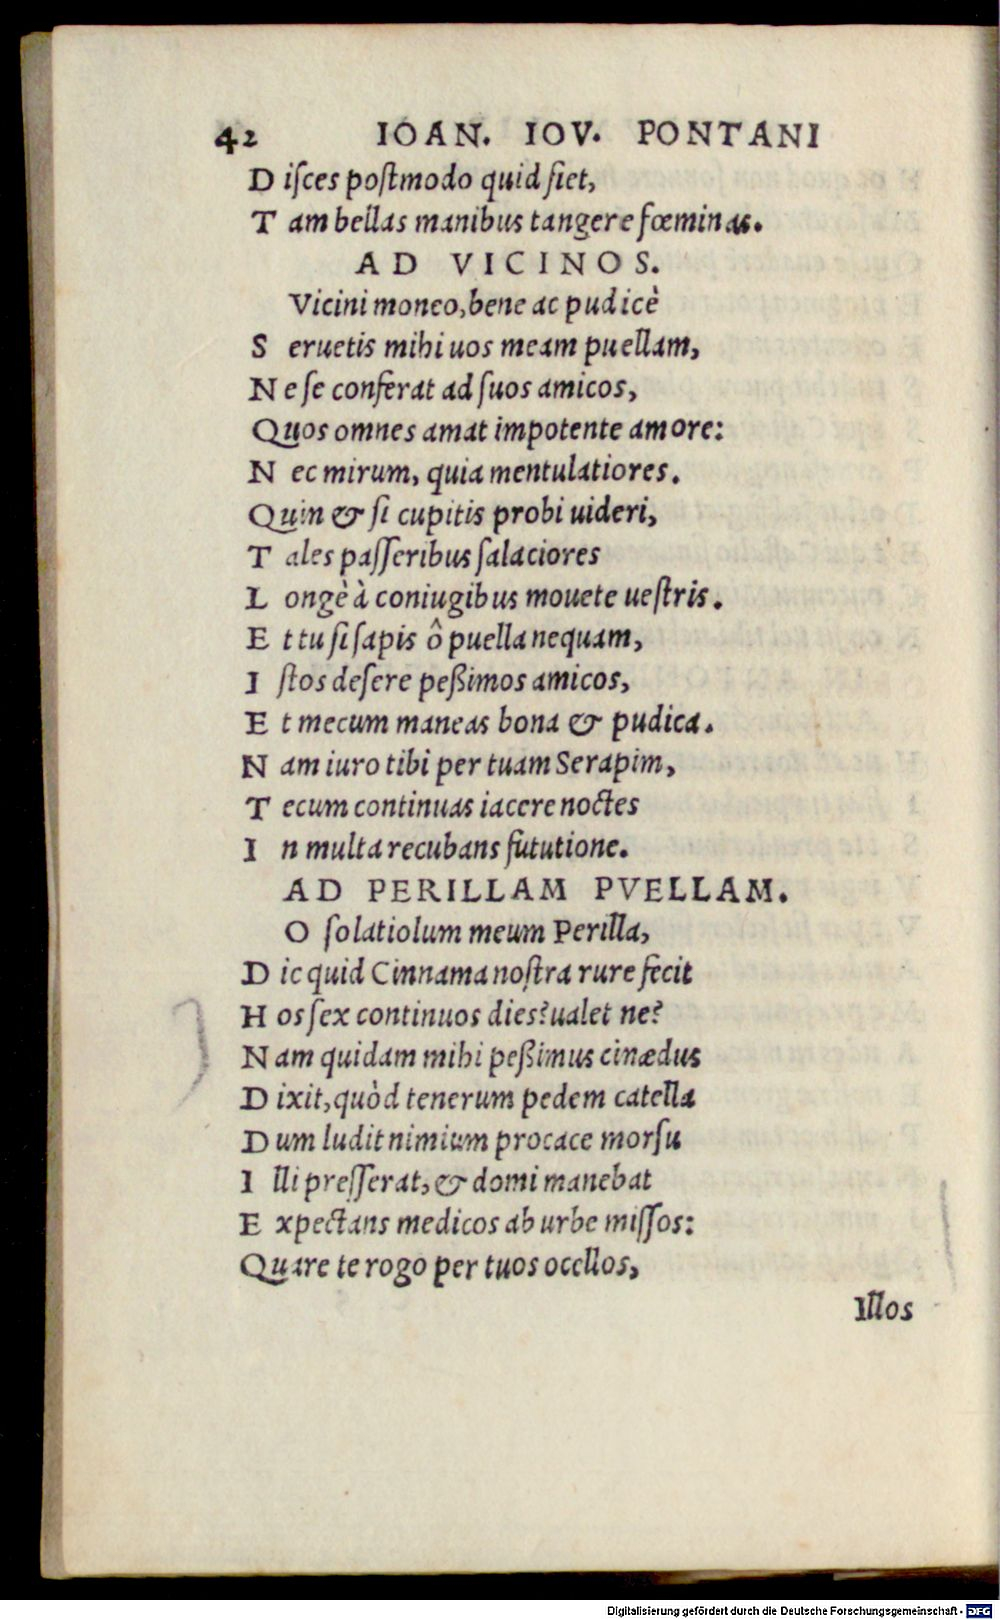 42 IOAN. IOV. PONTANI
D iſces poſtmodo quid ſiet,
T am bellas manibus tangere fœminas.
AD VICINOS.
Vicini moneo, bene ac pudicè
S eruetis mihi uos meam puellam,
N e ſe conferat ad ſuos amicos,
Quos omnes amat impotente amore:
N ec mirum, quia mentulatiores.
Quin & ſi cupitis probi uideri,
T ales paſſeribus ſalaciores
L ongè à coniugibus mouete ueſtris.
E t tu ſi ſapis ô puella nequam,
I ſtos deſere peßimos amicos,
E t mecum maneas bona & pudica.
N am iuro tibi per tuam Serapim,
T ecum continuas iacere noctes
I n multa recubans fututione.
AD PERILLAM PVELLAM.
O ſolatiolum meum Perilla,
D ic quid Cinnama noſtra rure fecit
H os ſex continuos dies? ualet ne?
N am quidam mihi peßimus cinædus
D ixit, quòd tenerum pedem catella
D um ludit nimium procace morſu
I lli preſſerat, & domi manebat
E xpectans medicos ab urbe miſſos:
Quare te rogo per tuos ocellos,
Illos
Digitalisierung gefördert durch die Deutsche Forschungsgemeinschaft - DFG